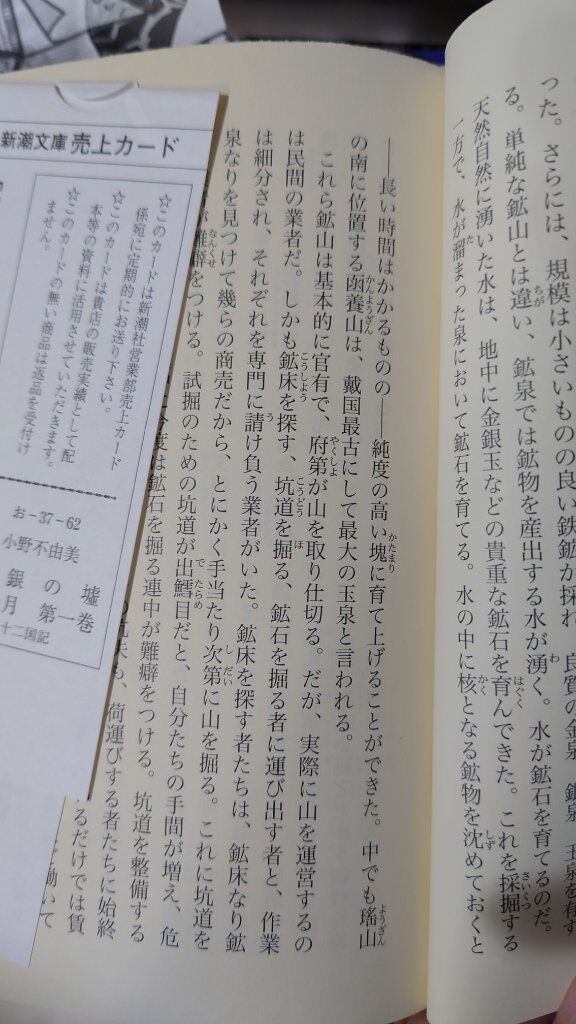 った。さらには、規模は小さいものの良い鉄鉱が採れ
る。単純な鉱山とは違い、鉱泉では鉱物を産出する水が湧く。水が鉱石を育てるのだ。
天然自然に湧いた水は、地中に金銀玉などの貴重な鉱石を育んできた。これを採掘する
一方で、水が溜まった泉において鉱石を育てる。水の中に核となる鉱物を沈めておくと
――長い時間はかかるものの――純度の高い塊に育て上げることができた。中でも瑤山
の南に位置する函養山は、戴国最古にして最大の玉泉と言われる。
これら鉱山は基本的に官有で、府第が山を取り仕切る。だが、実際に山を運営するの
は民間の業者だ。しかも鉱床を探す、坑道を掘る、鉱石を掘る者に運び出す者と、作業
は細分され、それぞれを専門に請け負う業者がいた。鉱床を探す者たちは、鉱床なり鉱
泉なりを見つけて幾らの商売だから、とにかく手当たり次第に山を掘る。これに坑道を
が難癖をつける。試掘のための坑道が出鱈目だと、自分たちの手間が増え、危
今度は鉱石を掘る連中が難癖をつける。坑道を整備する
も、荷運びする者たちに始終
るだけでは賃
働いて
新潮文庫 売上カード
☆このカードは新潮社営業部売上カード
係宛に定期的にお送り下さい。
☆このカードは貴店の販売実績として配
本等の資料に活用させていただきます。
☆このカードの無い商品は返品を受付け
ません。
お-37-62
小野不由美
銀の墟
月 第一巻
十二国記